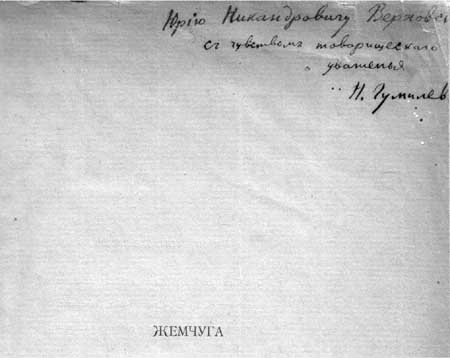 Юрію Никандровичу Верховс
съ чувствомъ товарищескаго
уваженья
Н. Гумилев
ЖЕМЧУГА